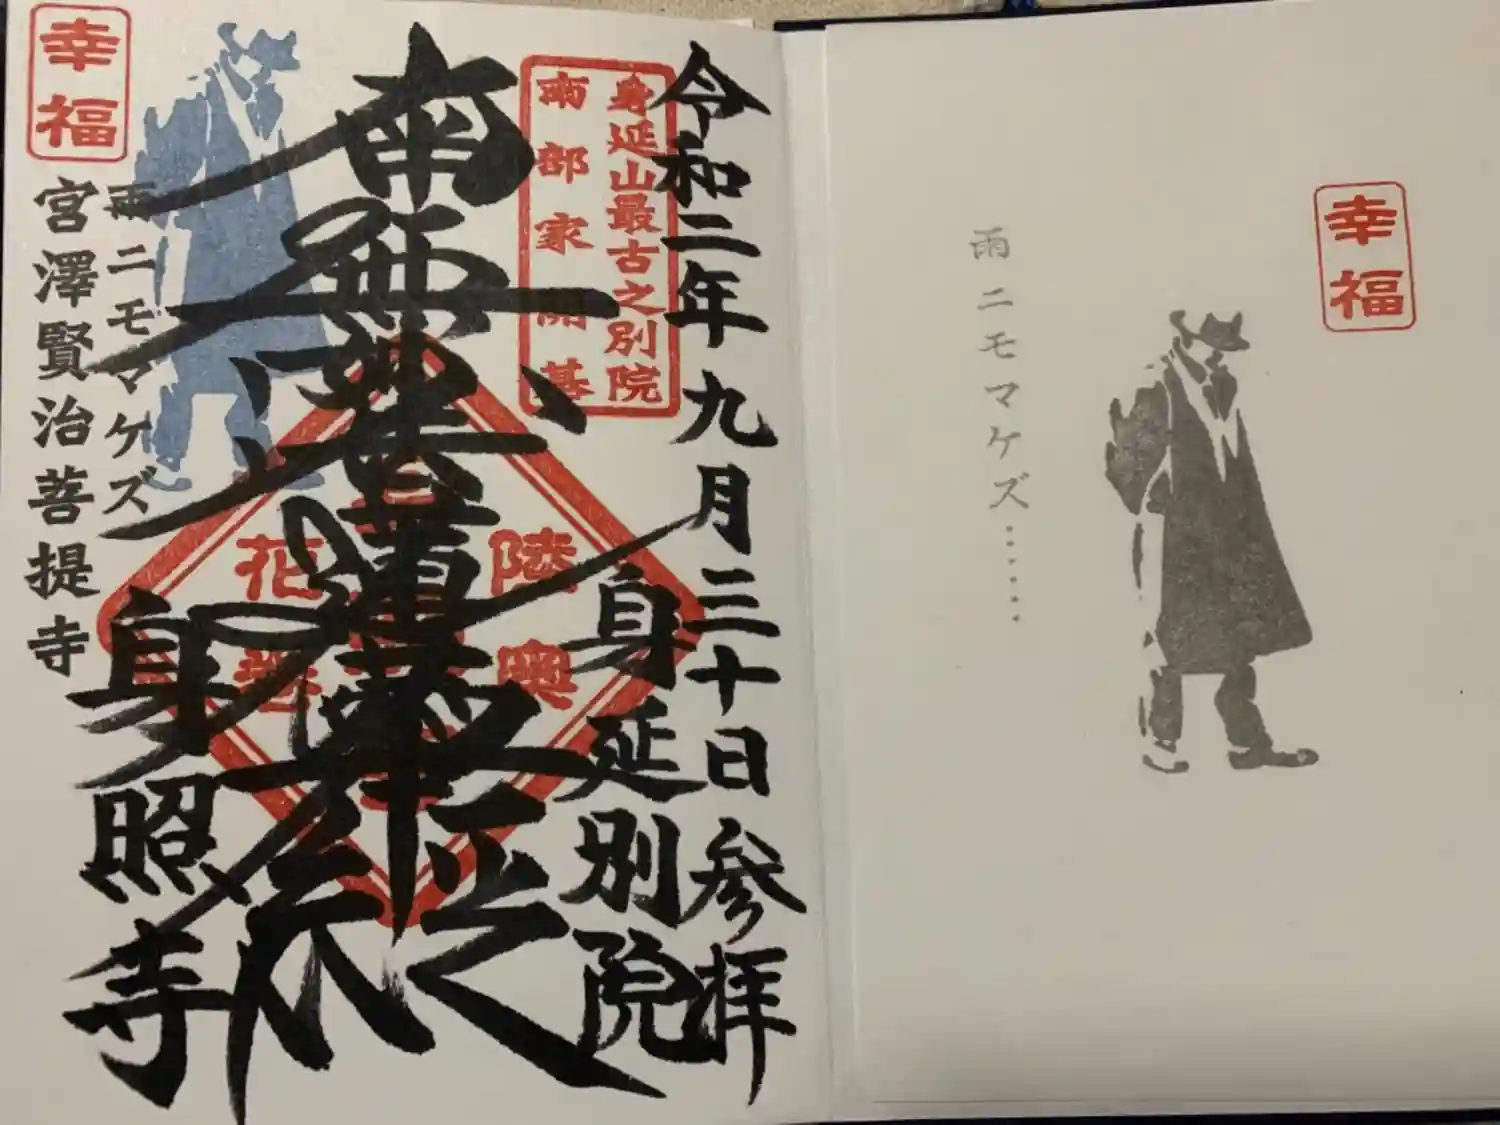 令和二年九月三十日参拝
身延山最古之別院
南部家開基
身延別院
南無妙法蓮華経
陸奥
花巻
身照寺
幸福
雨ニモマケズ
宮澤賢治菩提寺
幸福
雨ニモマケズ・・・・・・